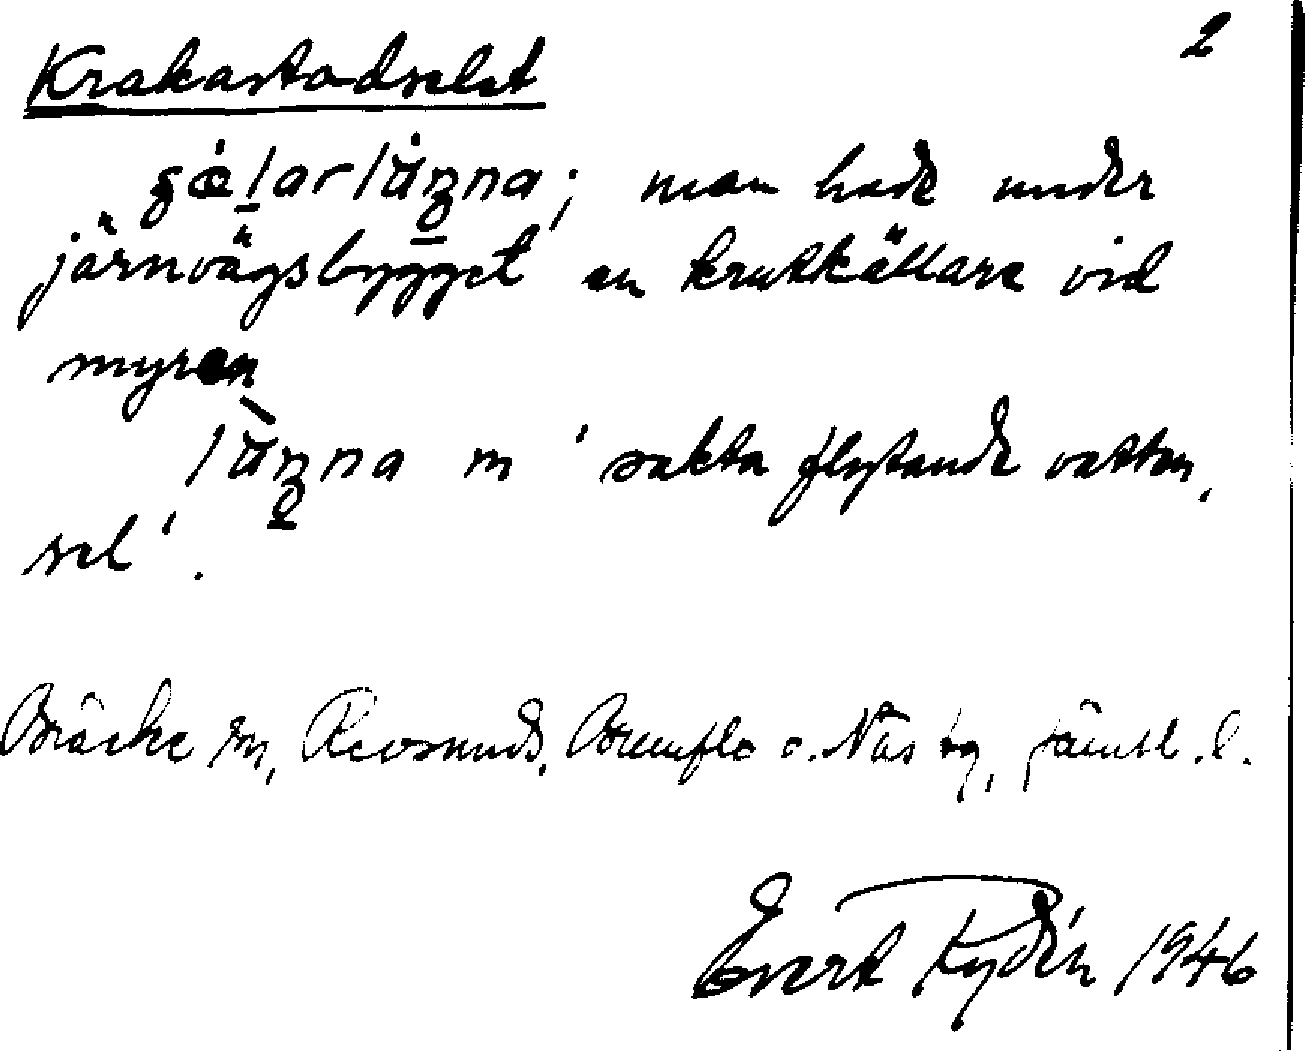 2
Krakastadselet
man hade under
järnvägsbygget en krutkällare vid
myren
m 'sakta flytande vatten,
sel'.
Bräcke sn, Revsunds, Brunflo o. Näs tg, Jämtl. l.
Evert Tydén 1946